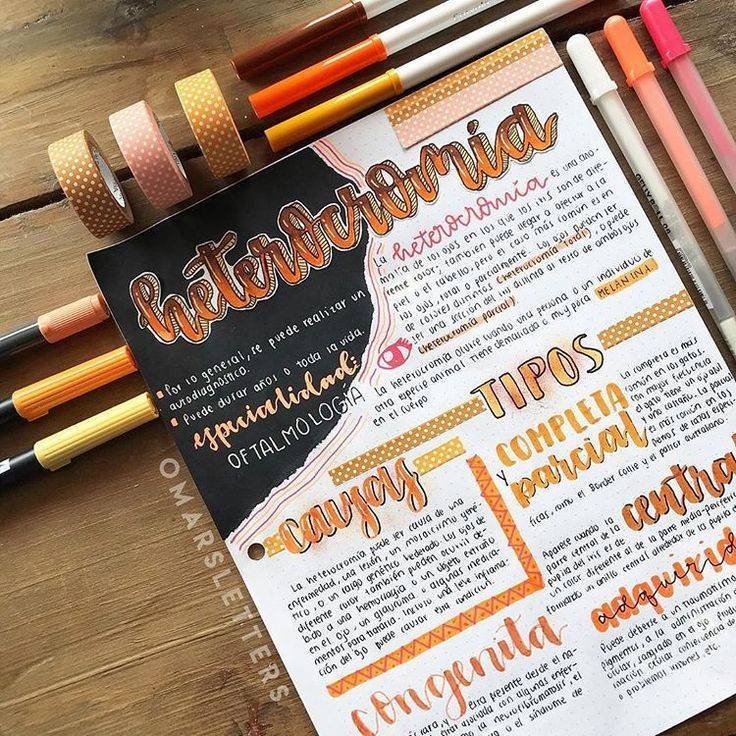 heterocromía
La heterocromía es una ano-
malía de los ojos en los que los iris son de dife-
rente color, también puede llegar a afectar a la
piel o el cabello, pero el caso más común es en
los ojos, total o parcialmente. Los ojos pueden ser
de colores distintos (heterocromía total), o puede
ser una sección del iris distinta al resto de ambos ojos
(heterocromía parcial).
La heterocromía ocurre cuando una persona o un individuo de
otra especie animal tiene demasiada o muy poca MELANINA.
en el cuerpo
▪ Por lo general, se puede realizar un
autodiagnóstico.
▪ Puede durar años o toda la vida.
especialidad:
OFTALMOLOGÍA
causas
La heterocromía puede ser causa de una
enfermedad, una lesión, un mosaicismo gené-
tico, o un rasgo genético heredado. Los ojos de
diferente color también pueden ocurrir de-
bido a una hemorragia o un objeto extraño
en el ojo, un glaucoma o algunos medica-
mentos para tratarlo. Incluso una leve inflama-
ción del ojo puede causar esta condición.
TIPOS
COMPLETA
y parcial
La completa es más
común en los gatos,
con mayor frecuencia
el gato tiene un ojo azul
y uno castaño. La parcial
es más común en los
perros de razas especí-
ficas, como el Border Collie y el pastor australiano.
central
Aparece cuando la
parte central de la
pupila del iris es de
un color diferente al de la parte media-periférica
formando un anillo central alrededor de la pupila
adquirid
Puede deberse a un traumatismo
pigmentes, a la administración
ocular, sangrado en el ojo
o problemas visuales etc.
congénita
está presente desde el na-
asociada con algunas enfer-
como la neurofibromatosis, el
o el síndrome de
OMARSLETTERS